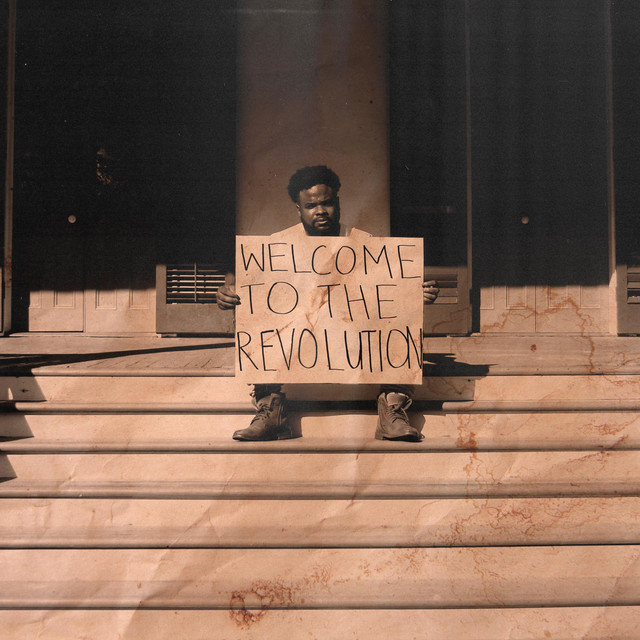 WELCOME
TO THE
REVOLUTION